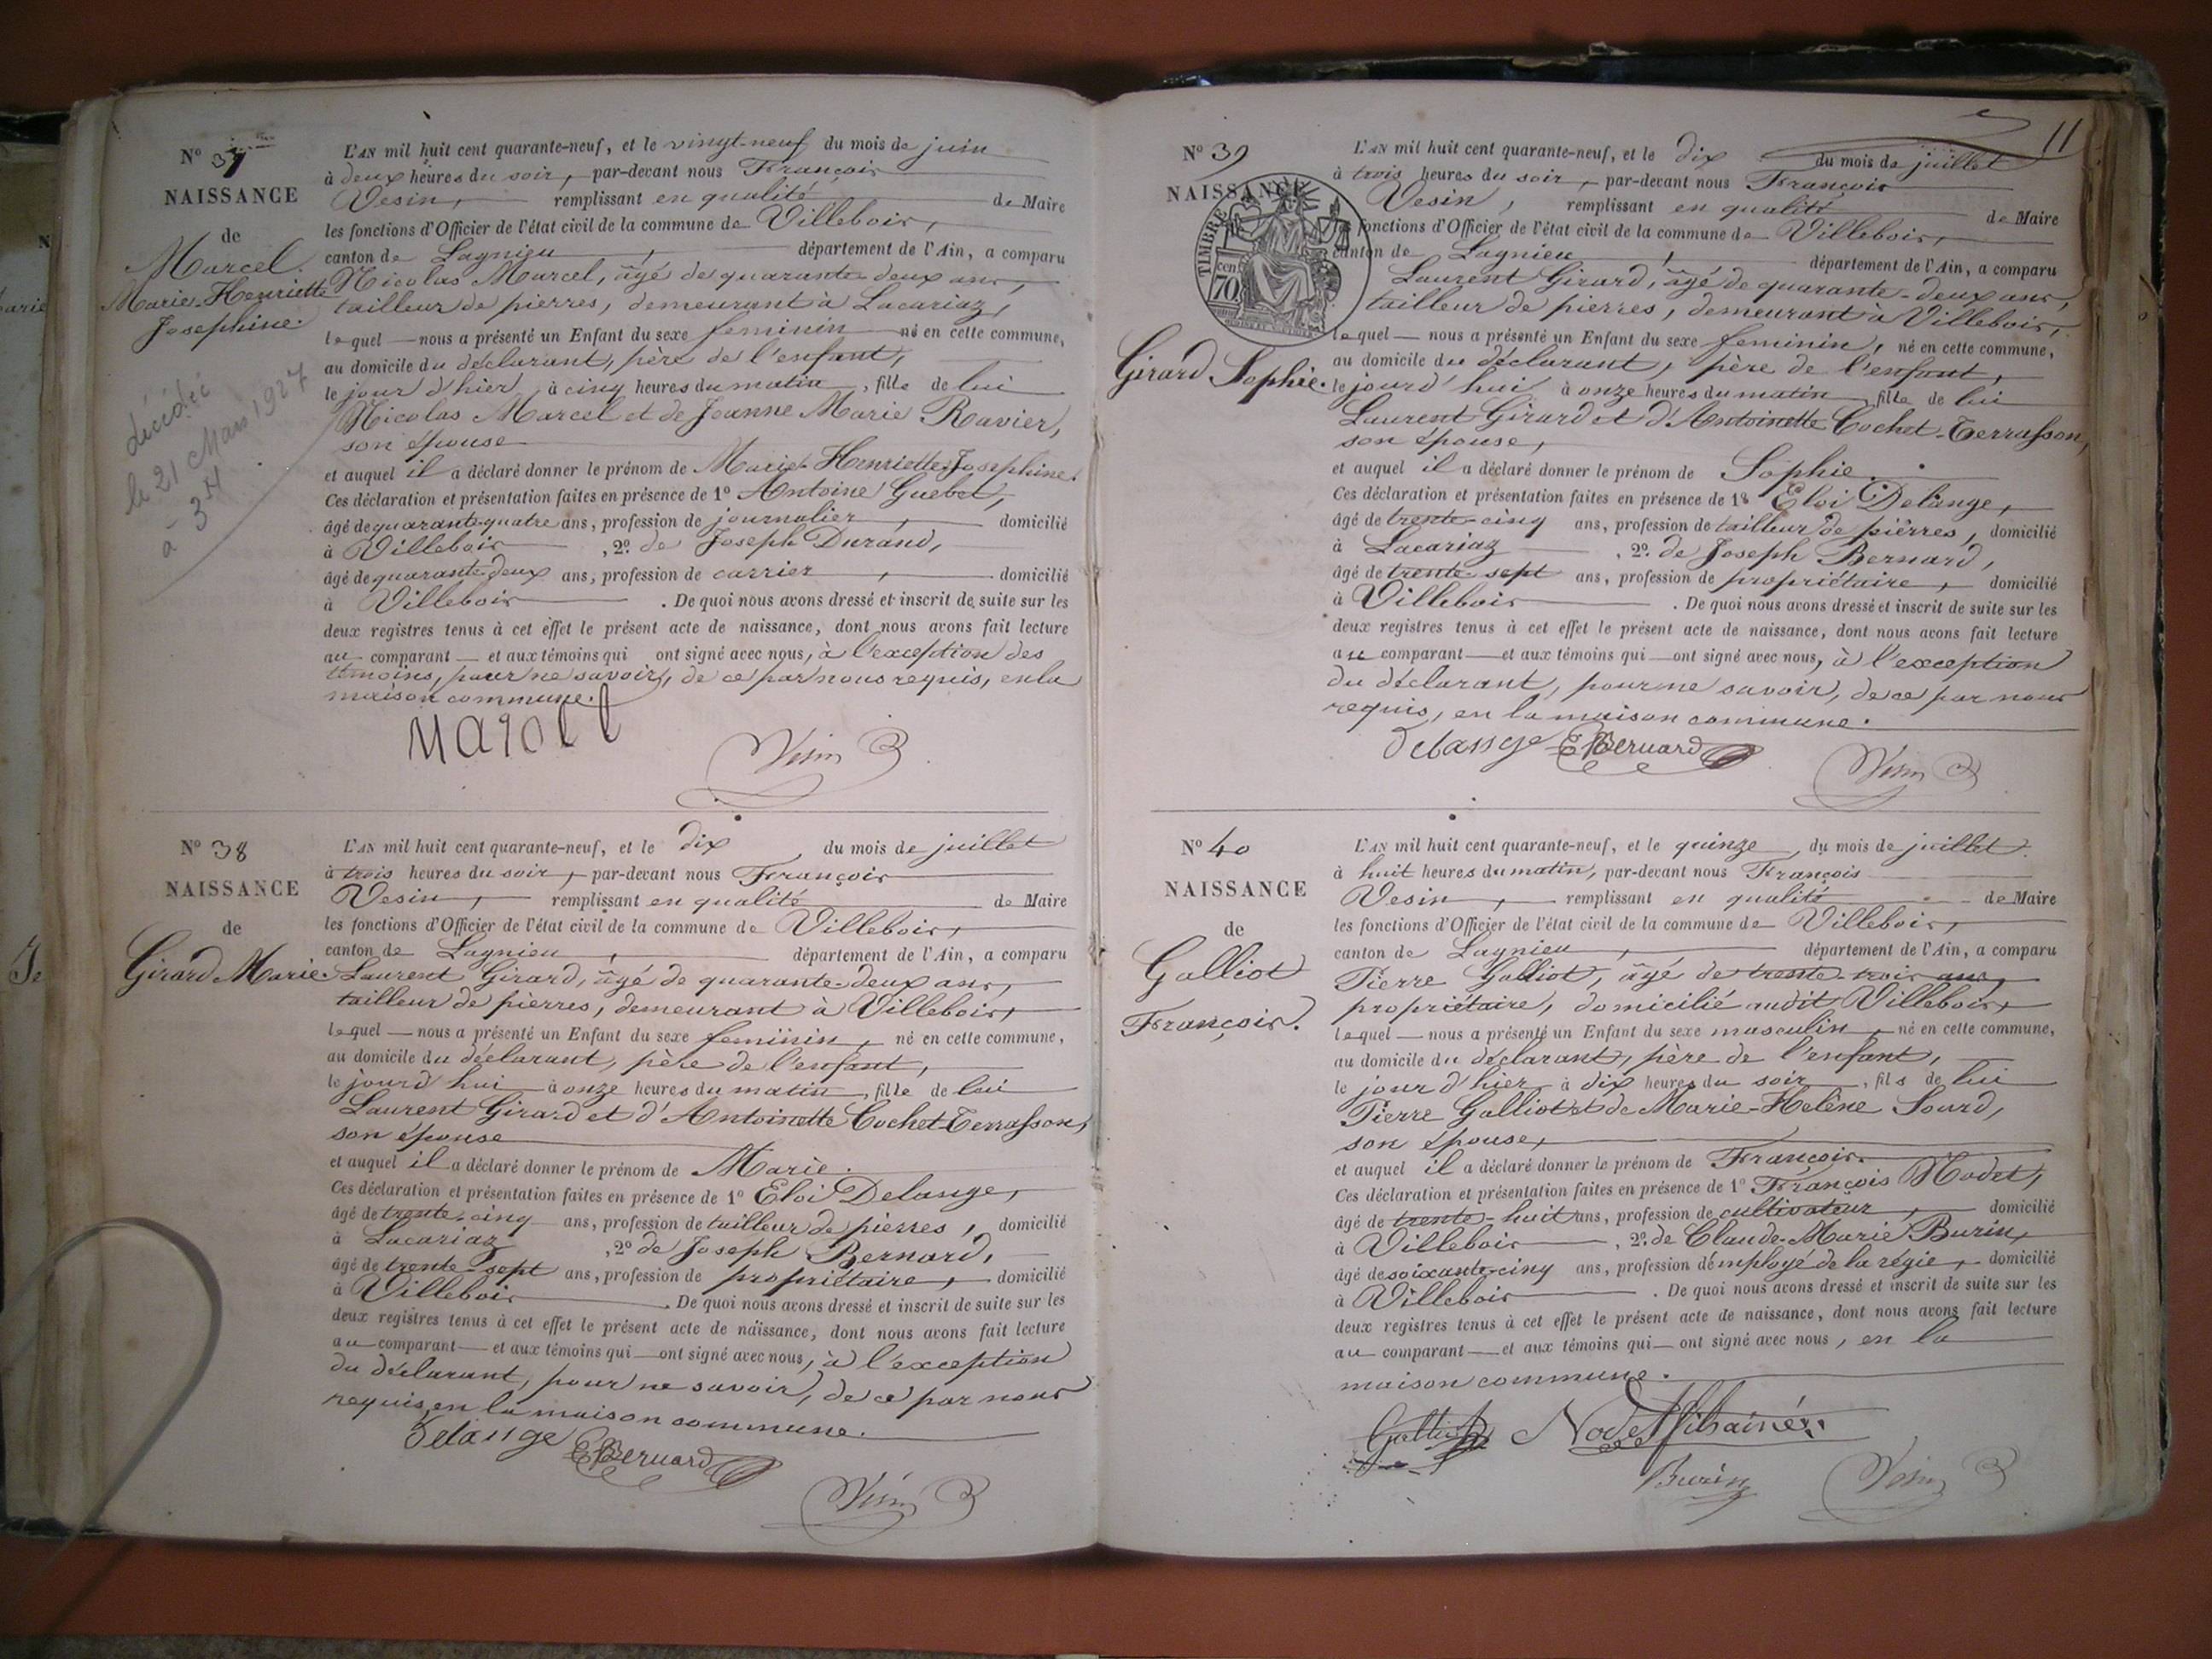 Nº 37
NAISSANCE
de
Marcel
Marie-Henriette
Josephine.
décédée
le 21 Mars 1927
à 3H
L'AN mil huit cent quarante-neuf, et le vingt-neuf du mois de juin
à deux heures du soir, par-devant nous François
Vesin, remplissant en qualité de Maire
les fonctions d'Officier de l'état civil de la commune de Villebois,
canton de Lagnieu, département de l'Ain, a comparu
Nicolas Marcel, âgé de quarante-deux ans,
tailleur de pierres, demeurant à Lacariaz,
lequel nous a présenté un Enfant du sexe feminin né en cette commune,
au domicile du déclarant, père de l'enfant,
le jour d'hier, à cinq heures du matin, fille de lui
Nicolas Marcel et de Jeanne Marie Ravier,
son épouse
et auquel il a déclaré donner le prénom de Marie-Henriette Josephine.
Ces déclaration et présentation faites en présence de 1º Antoine Guebet,
âgé de quarante-quatre ans, profession de journalier, domicilié
à Villebois, 2º de Joseph Durand,
âgé de quarante-deux ans, profession de carrier, domicilié
à Villebois. De quoi nous avons dressé et inscrit de suite sur les
deux registres tenus à cet effet le présent acte de naissance, dont nous avons fait lecture
au comparant et aux témoins qui ont signé avec nous, à l'exception des
témoins, pour ne savoir, de ce par nous requis, en la
maison commune.
Marcel Vesin
Nº 38
NAISSANCE
de
Girard Marie.
L'AN mil huit cent quarante-neuf, et le dix du mois de juillet
à trois heures du soir, par-devant nous François
Vesin, remplissant en qualité de Maire
les fonctions d'Officier de l'état civil de la commune de Villebois,
canton de Lagnieu, département de l'Ain, a comparu
Laurent Girard, âgé de quarante-deux ans,
tailleur de pierres, demeurant à Villebois,
lequel nous a présenté un Enfant du sexe feminin, né en cette commune,
au domicile du déclarant, père de l'enfant,
le jourd'hui à onze heures du matin, fille de lui
Laurent Girard et d'Antoinette Cochet-Terrasson,
son épouse
et auquel il a déclaré donner le prénom de Marie.
Ces déclaration et présentation faites en présence de 1º Eloi Delange,
âgé de trente-cinq ans, profession de tailleur de pierres, domicilié
à Lacariaz, 2º de Joseph Bernard,
âgé de trente-sept ans, profession de propriétaire, domicilié
à Villebois. De quoi nous avons dressé et inscrit de suite sur les
deux registres tenus à cet effet le présent acte de naissance, dont nous avons fait lecture
au comparant et aux témoins qui ont signé avec nous, à l'exception
du déclarant, pour ne savoir, de ce par nous
requis, en la maison commune.
Delange Bernard
Vesin
11
Nº 39
NAISSANCE
TIMBRE
70 cen
Girard Sophie.
L'AN mil huit cent quarante-neuf, et le dix du mois de juillet
à trois heures du soir, par-devant nous François
Vesin, remplissant en qualité de Maire
les fonctions d'Officier de l'état civil de la commune de Villebois,
canton de Lagnieu, département de l'Ain, a comparu
Laurent Girard, âgé de quarante-deux ans,
tailleur de pierres, demeurant à Villebois,
lequel nous a présenté un Enfant du sexe feminin, né en cette commune,
au domicile du déclarant, père de l'enfant,
le jourd'hui à onze heures du matin, fille de lui
Laurent Girard et d'Antoinette Cochet-Terrasson,
son épouse,
et auquel il a déclaré donner le prénom de Sophie.
Ces déclaration et présentation faites en présence de 1º Eloi Delange,
âgé de trente-cinq ans, profession de tailleur de pierres, domicilié
à Lacariaz, 2º de Joseph Bernard,
âgé de trente-sept ans, profession de propriétaire, domicilié
à Villebois. De quoi nous avons dressé et inscrit de suite sur les
deux registres tenus à cet effet le présent acte de naissance, dont nous avons fait lecture
au comparant et aux témoins qui ont signé avec nous, à l'exception
du déclarant, pour ne savoir, de ce par nous
requis, en la maison commune.
Delange Bernard
Vesin
Nº 40
NAISSANCE
de
Galliot
François.
L'AN mil huit cent quarante-neuf, et le quinze, du mois de juillet
à huit heures du matin, par-devant nous François
Vesin, remplissant en qualité de Maire
les fonctions d'Officier de l'état civil de la commune de Villebois,
canton de Lagnieu, département de l'Ain, a comparu
Pierre Galliot, âgé de trente-trois ans,
propriétaire, domicilié audit Villebois,
lequel nous a présenté un Enfant du sexe masculin, né en cette commune,
au domicile du déclarant, père de l'enfant,
le jour d'hier, à dix heures du soir, fils de lui
Pierre Galliot et de Marie-Helène Sourd,
son épouse,
et auquel il a déclaré donner le prénom de François.
Ces déclaration et présentation faites en présence de 1º François Nodet,
âgé de trente-huit ans, profession de cultivateur, domicilié
à Villebois, 2º de Claude-Marie Burin,
âgé de soixante-cinq ans, profession d'employé de la régie, domicilié
à Villebois. De quoi nous avons dressé et inscrit de suite sur les
deux registres tenus à cet effet le présent acte de naissance, dont nous avons fait lecture
au comparant et aux témoins qui ont signé avec nous, en la
maison commune.
Galliot Nodet fils ainé
Burin Vesin